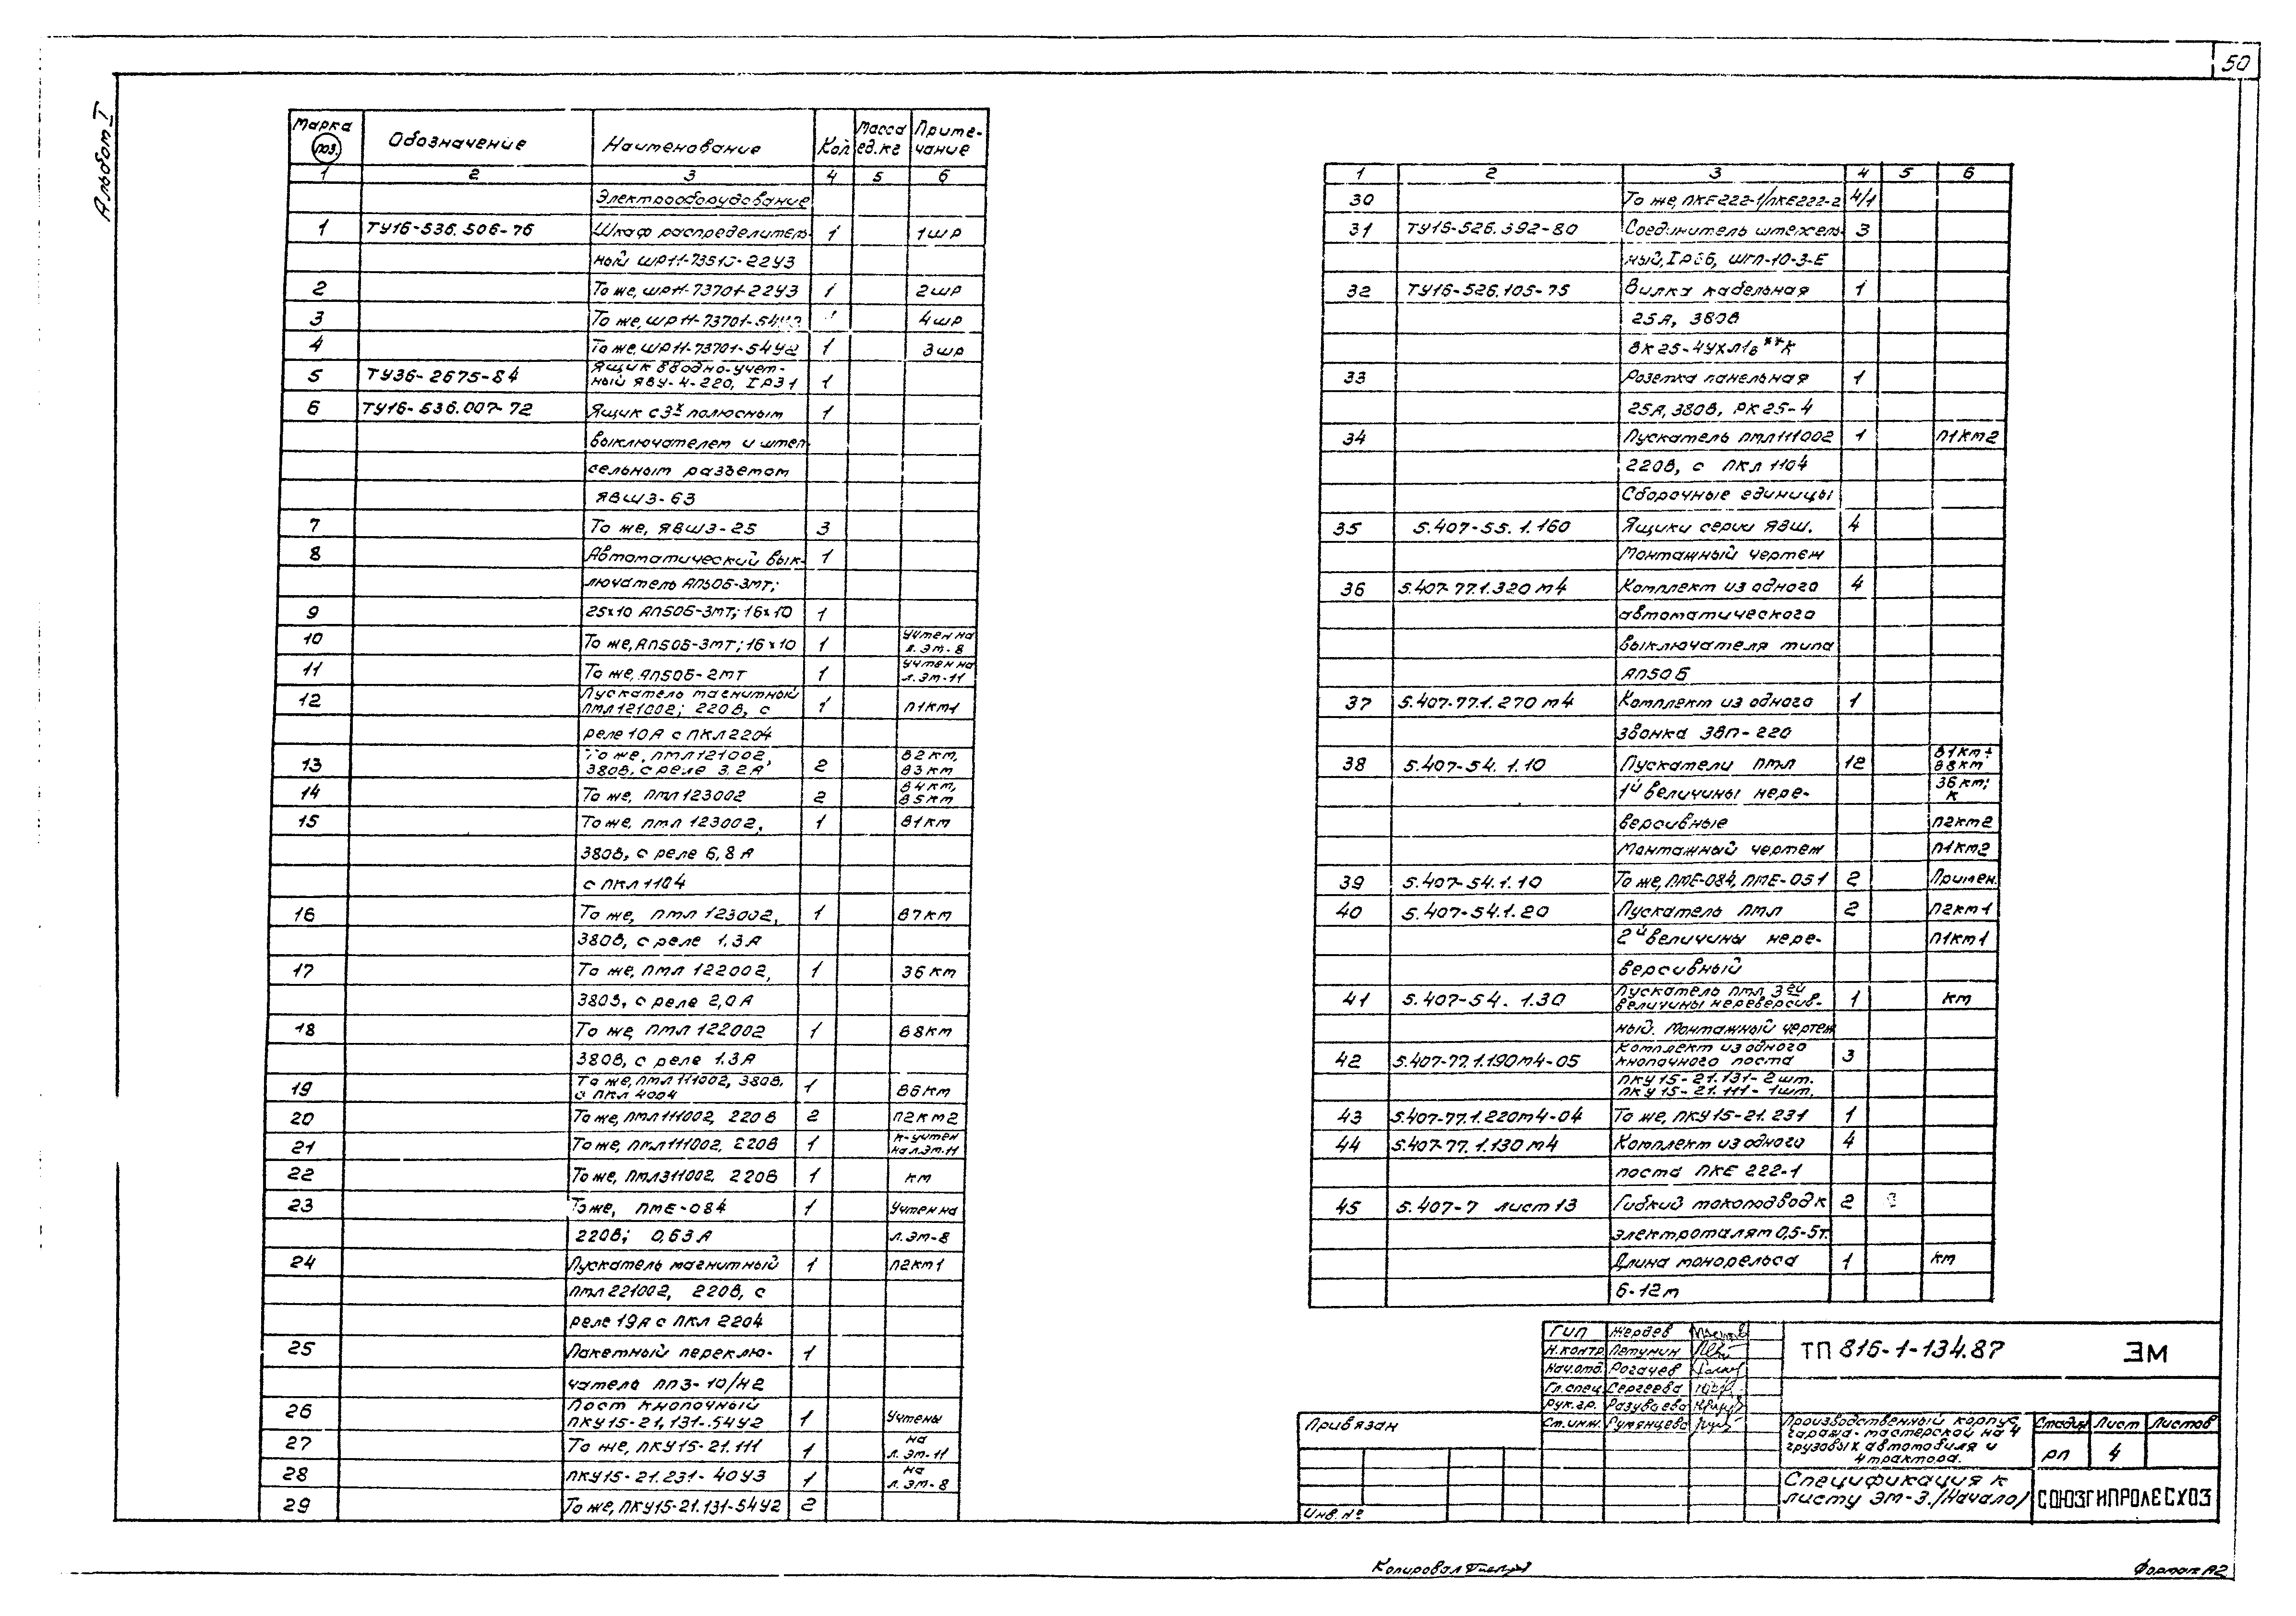 50
Альбом I
Марка поз. Обозначение Наименование Кол Масса ед.кг Примечание
1 2 3 4 5 6
Электрооборудование
1 ТУ16-536.506-76 Шкаф распределитель- 1 1ШР
ный ШР11-73513-22У3
2 То же, ШР11-73701-22У3 1 2ШР
3 То же, ШР11-73701-54У2 4ШР
4 То же, ШР11-73701-54У2 1 3ШР
5 ТУ36-2675-84 Ящик вводно-учет-
ный ЯВУ-4-220, IP31 1
6 ТУ16-536.007-72 Ящик с 3х полюсным 1
выключателем и штеп
сельным разъемом
ЯВШ3-63
7 То же, ЯВШ3-25 3
8 Автоматический вык- 1
лючатель АП50Б-3МТ;
9 25х10 АП50Б-3МТ; 16х10 1
10 То же, АП50Б-3МТ; 16х10 1 Учтен на л. ЭМ-8
11 То же, АП50Б-2МТ 1 Учтен на л. ЭМ-11
12 Пускатель магнитный
ПМЛ121002; 220В, с 1 П1КМ1
реле 10А с ПКЛ2204
13 То же, ПМЛ121002,
380В, с реле 3.2А 2 В2КМ, В3КМ
14 То же, ПМЛ123002 2 В4КМ, В5КМ
15 То же, ПМЛ 123002, 1 В1КМ
380В, с реле 6,8А
с ПКЛ1104
16 То же, ПМЛ 123002, 1 В7КМ
380В, с реле 1.3А
17 То же, ПМЛ 122002, 1 36КМ
380В, с реле 2,0А
18 То же, ПМЛ 122002 1 В8КМ
380В, с реле 1.3А
19 То же, ПМЛ 111002, 380В,
с ПКЛ 4004 1 В6КМ
20 То же, ПМЛ111002, 220В 2 П2КМ2
21 То же, ПМЛ111002, 220В 1 К-учтен на л.ЭМ-11
22 То же, ПМЛ311002, 220В 1 КМ
23 То же, ПМЕ-084 1 Учтен на
220В; 0,63А л.ЭМ-8
24 Пускатель магнитный 1 П2КМ1
ПМЛ221002, 220В, с
реле 19А с ПКЛ 2204
25 Пакетный переклю- 1
чатель ПП3-10/Н2
26 Пост кнопочный
ПКУ15-21,131-54У2 1 Учтены
27 То же, ПКУ15-21.111 1 на л. ЭМ-11
28 ПКУ15-21.231-40У3 1 на л. ЭМ-8
29 То же, ПКУ15-21.131-54У2 2
1 2 3 4 5 6
30 То же, ПКЕ222-1/ПКЕ222-2 4/1
31 ТУ16-526.392-80 Соединитель штепсель- 3
ный, IР56, ШГП-10-3-Е
32 ТУ16-526.105-75 Вилка кабельная 1
25А, 380В
ВК25-4УХЛ1в**К
33 Розетка панельная 1
25А, 380В, РК25-4
34 Пускатель ПМЛ111002 1 П1КМ2
220В, с ПКЛ 1104
Сборочные единицы
35 5.407-55.1.160 Ящики серии ЯВШ. 4
Монтажный чертеж
36 5.407-77.1.320 м4 Комплект из одного 4
автоматического
выключателя типа
АП50Б
37 5.407-77.1.270 м4 Комплект из одного 1
звонка ЗВП-220
38 5.407-54.1.10 Пускатели ПМЛ 12 В1КМ÷ В8КМ
1й величины нере- 36КМ; К
версивные П2КМ2
Монтажный чертеж П1КМ2
39 5.407-54.1.10 То же, ПМЕ-084, ПМЕ-051 2 Примен.
40 5.407-54.1.20 Пускатель ПМЛ 2 П2КМ1
2й величины нере- П1КМ1
версивный
41 5.407-54.1.30 Пускатель ПМЛ 3ей
величины нереверсив- 1 КМ
ный. Монтажный чертеж
42 5.407-77.1.190м4-05 Комплект из одного
кнопочного поста 3
ПКУ15-21.131-2шт.
ПКУ15-21.111-1шт.
43 5.407-77.1.220м4-04 То же, ПКУ15-21.231 1
44 5.407-77.1.130м4 Комплект из одного 4
поста ПКЕ 222-1
45 5.407-7 лист 13 Гибкий токоподвод к 2
электроталям 0,5-5т.
Длина монорельса 1 КМ
6-12м
ГИП Жердев
Н.контр. Петунин
Нач.отд. Рогачев
Гл.спец. Сергеева
Рук.гр. Разуваева
Ст.инж. Румянцева
Привязан
Инв.№
ТП 816-1-134.87 ЭМ
Производственный корпус
гаража-мастерской на 4
грузовых автомобиля и
4 трактора.
Стадия Лист Листов
РП 4
Спецификация к
листу ЭМ-3. /Начало/
СОЮЗГИПРОЛЕСХОЗ
Копировал
Формат А2